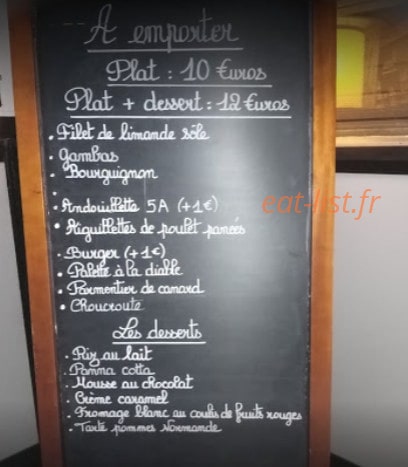 A emporter
Plat : 10 €uros
Plat + dessert : 12 €uros
• Filet de limande sole
• Gambas
• Bourguignon
•
• Andouillette 5A (+1€)
eat-list.fr
• Aiguillettes de poulet panés
• Burger (+1€)
• Palette à la diable
• Parmentier de canard
• Choucroute
Les desserts
• Riz au lait
• Panna cotta
• Mousse au chocolat
• Crème caramel
• Fromage blanc au coulis de fruits rouges
• Tarte pommes Normande